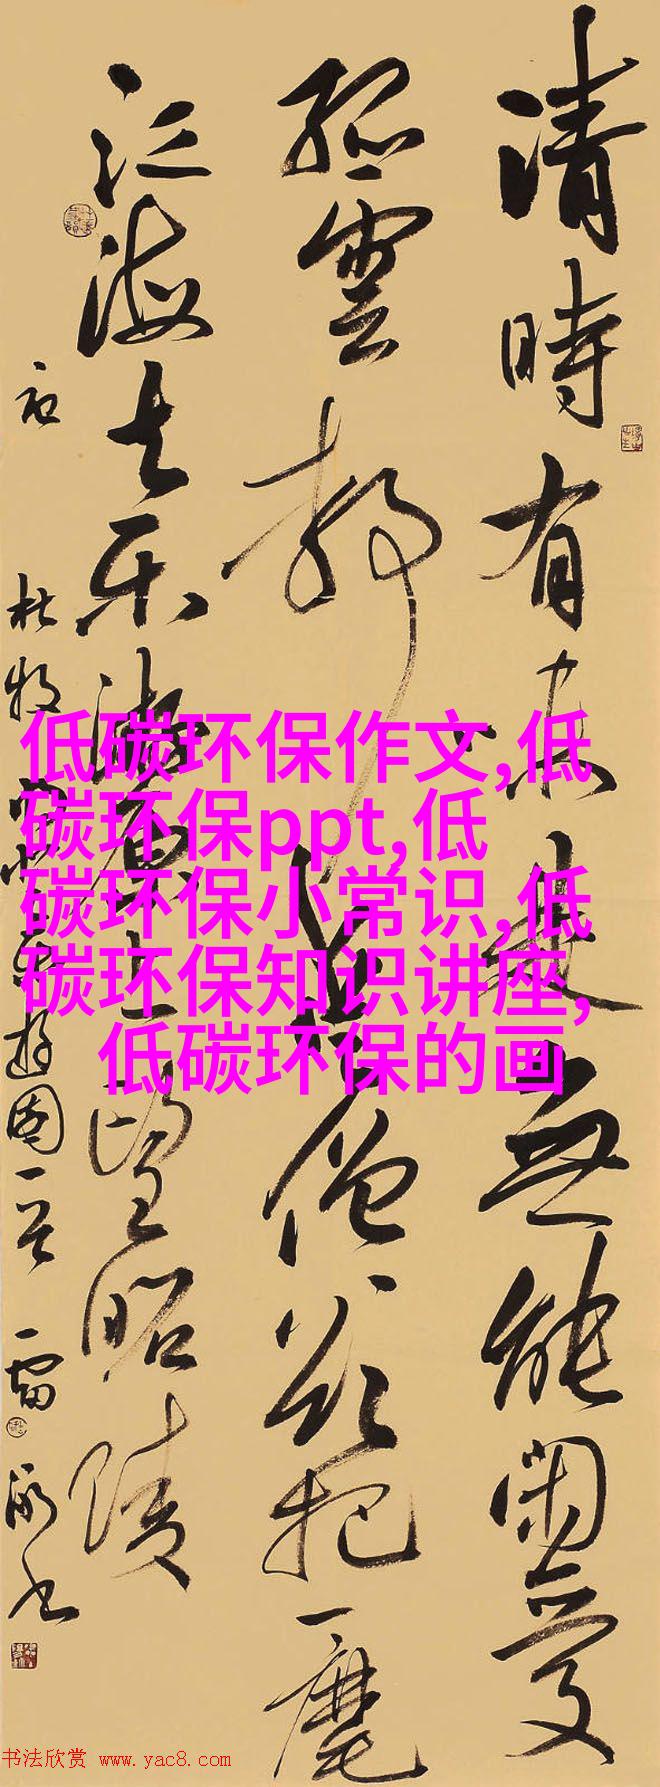 清時有味是無能閑愛
孤雲静愛僧欲把一麾
江海去乐游原上望昭陵
杜牧
低碳环保作文,低
碳环保ppt,低
碳环保小常识,低
碳环保知识讲座,
低碳环保的画
书法欣赏 www.yac8.com